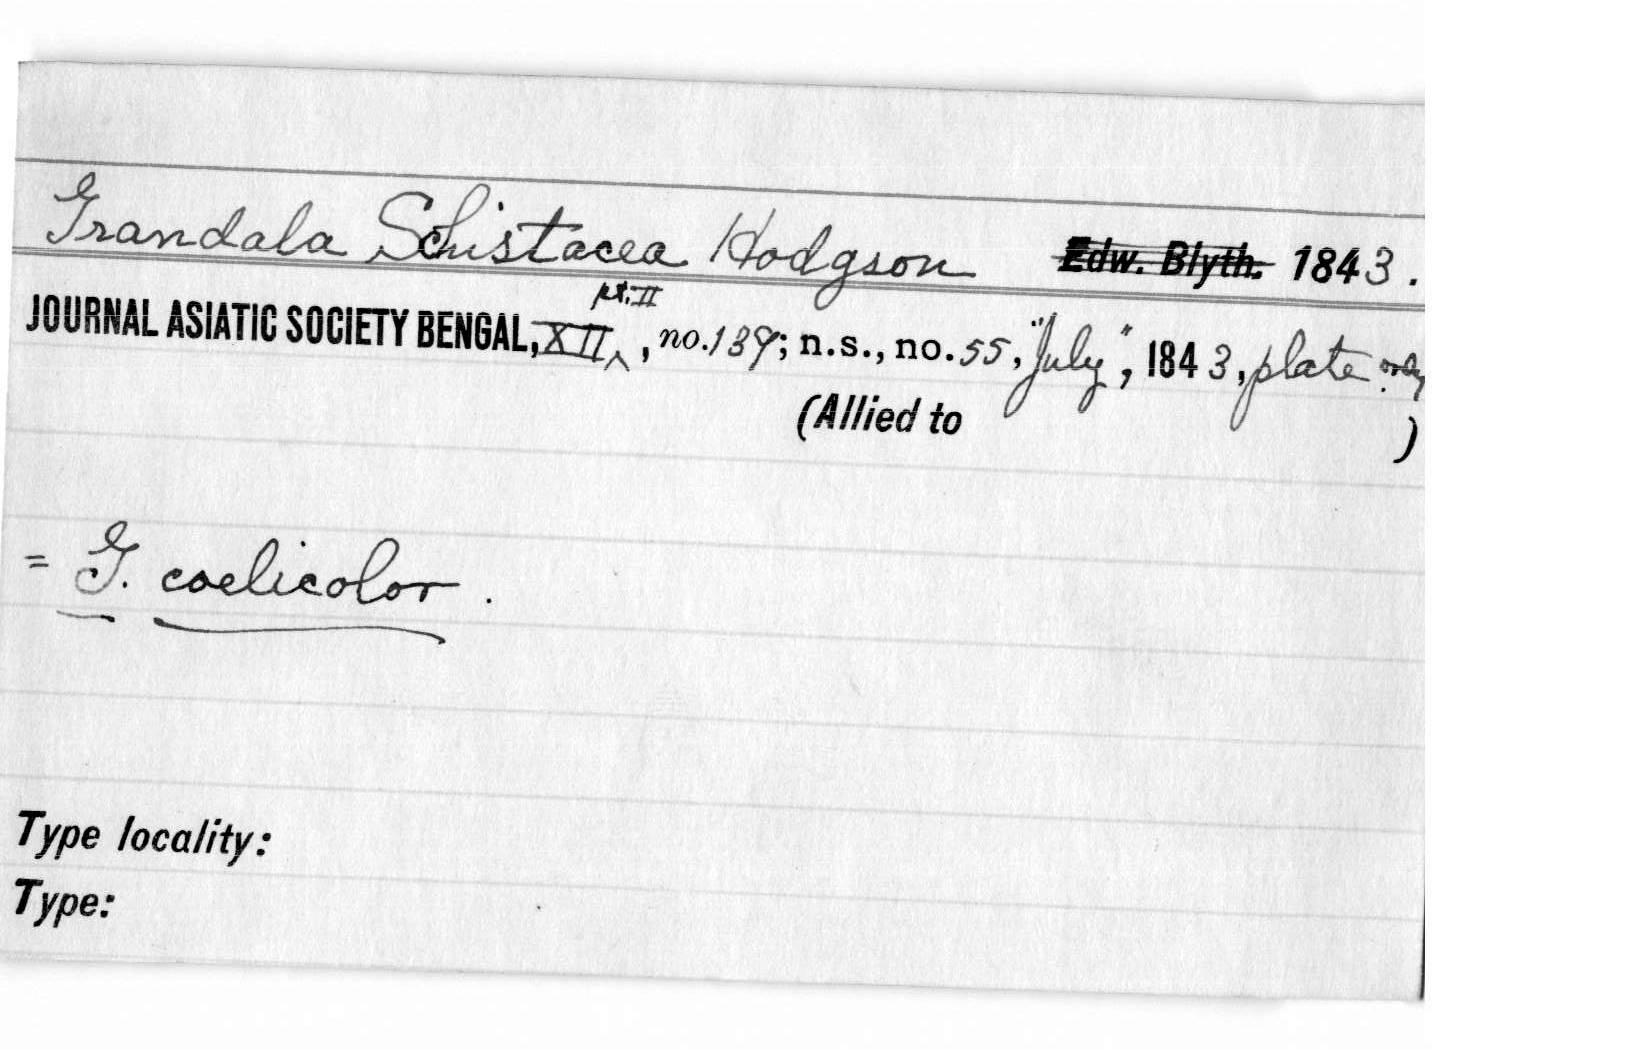 Grandala Schistacea Hodgson Edw. Blyth. 1843.
pt. II
JOURNAL ASIATIC SOCIETY BENGAL, XII, no. 139; n.s., no. 55, "July", 1843, plate only
(Allied to )
= G. coelicolor.
Type locality:
Type: